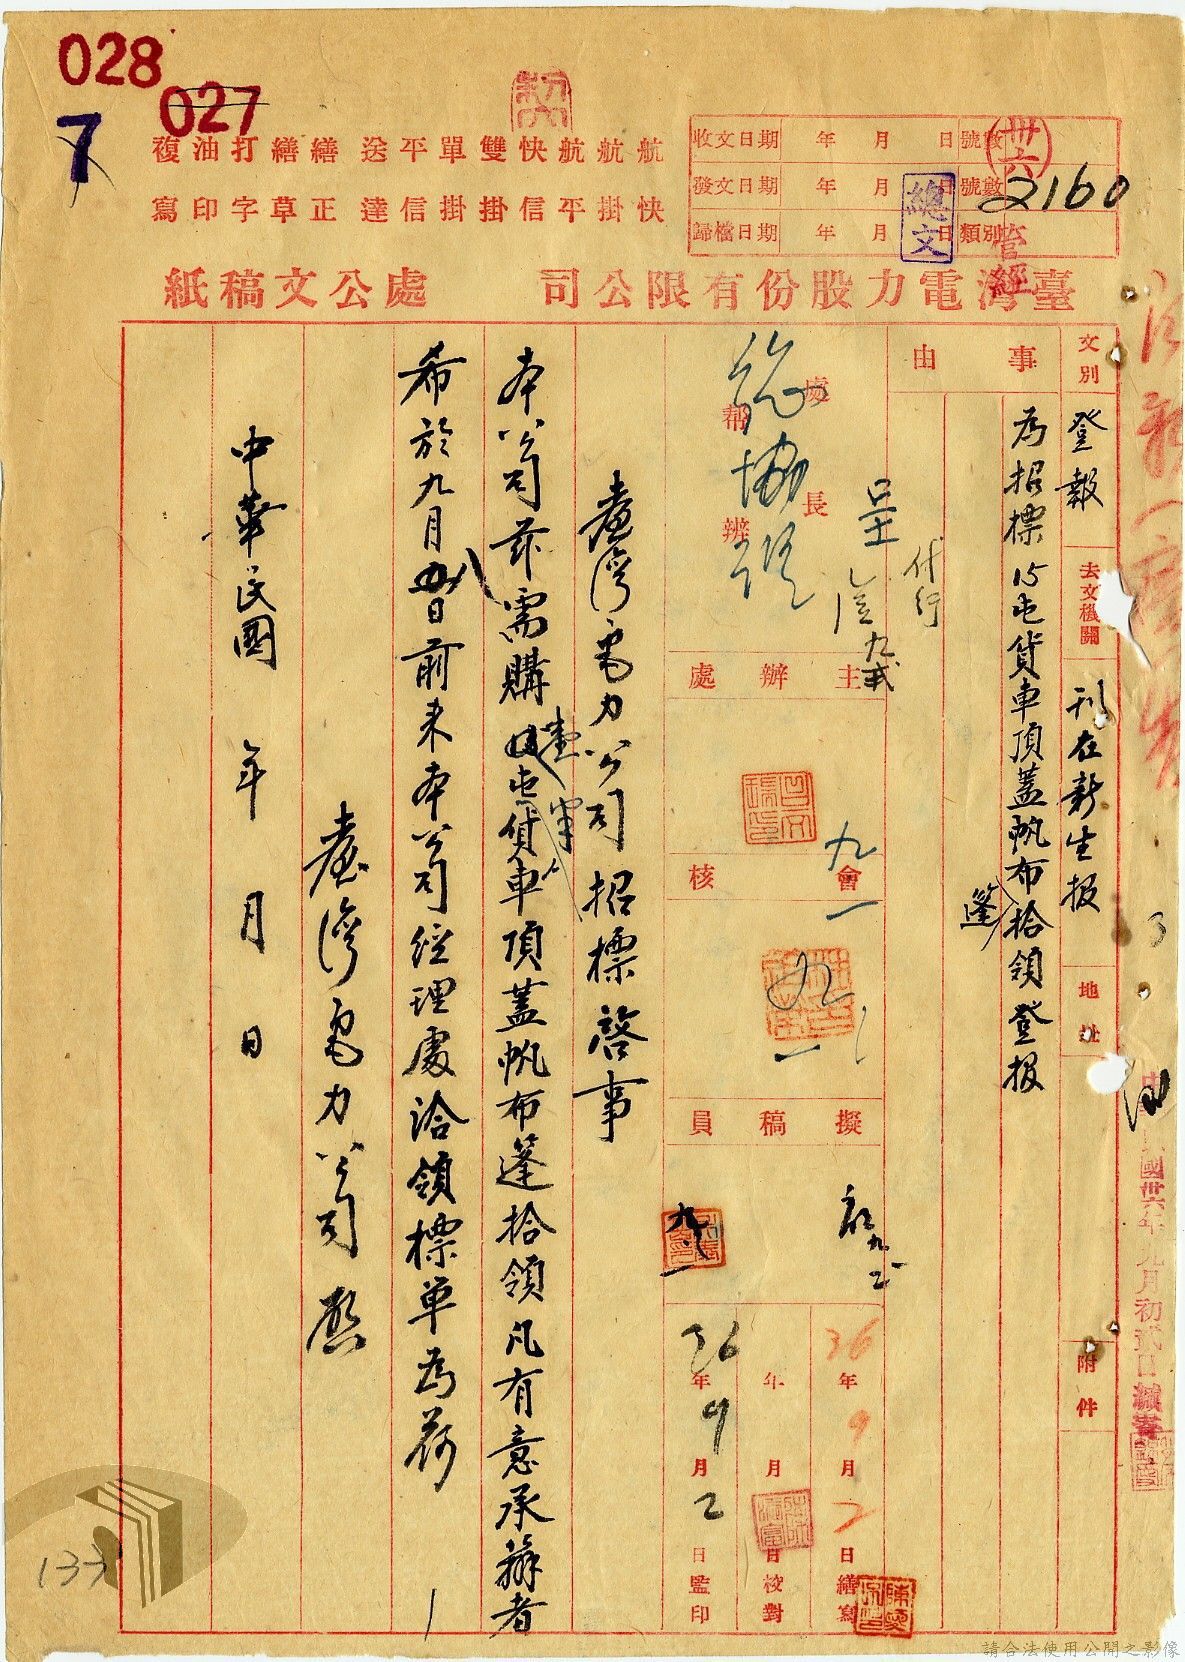 028
027
7
航航航快雙單平送 繕繕打油複
快掛平信掛掛信達 正草字印寫
收文日期 年 月 日 號數
發文日期 年 月 日 號數
歸檔日期 年 月 日 類別
卅六
2160
總文
管
經
臺灣電力股份有限公司 處公文稿紙
文別
登報
去文機關
刊在新生报
地址
附件
事由
為招標15屯貨車頂蓋帆布拾領登报
篷
代行
處長
幫辦
總協理
主辦處
會核
九
一
擬稿員
36年9月2日繕寫
年 月 日校對
36年9月2日監印
臺灣電力公司招標啓事
本公司茲需購屯貨車頂蓋帆布篷拾領凡有意承辦者
希於九月日前来本公司經理處洽領標單為荷
臺灣電力公司啟
中華民國 年 月 日
國卅六年九月初弍日
133
請合法使用公開之影像